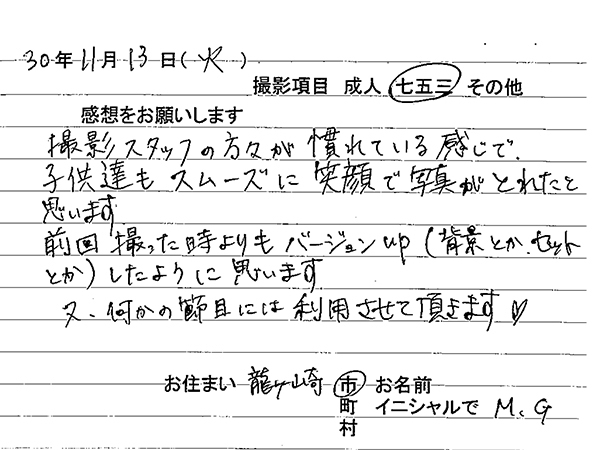 30年11月13日(火)
撮影項目 成人 七五三 その他
感想をお願いします
撮影スタッフの方々が慣れている感じで、
子供達もスムーズに笑顔で写真がとれたと
思います
前回撮った時よりもバージョンup(背景とか、セット
とか)したように思います
又、何かの節目には利用させて頂きます♡
お住まい 龍ヶ崎 市 お名前
町 イニシャルで M、G
村